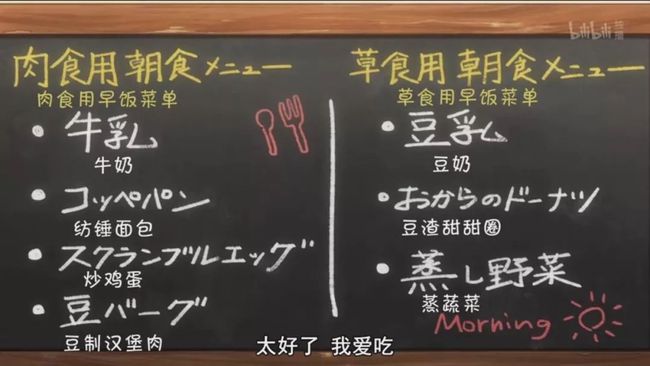 bilibili 番剧
肉食用朝食メニュー
肉食用早饭菜单
・牛乳
牛奶
・コッペパン
纺锤面包
・スクランブルエッグ
炒鸡蛋
・豆バーグ
豆制汉堡肉
草食用朝食メニュー
草食用早饭菜单
・豆乳
豆奶
・おからのドーナツ
豆渣甜甜圈
・蒸し野菜
蒸蔬菜
Morning
太好了 我爱吃